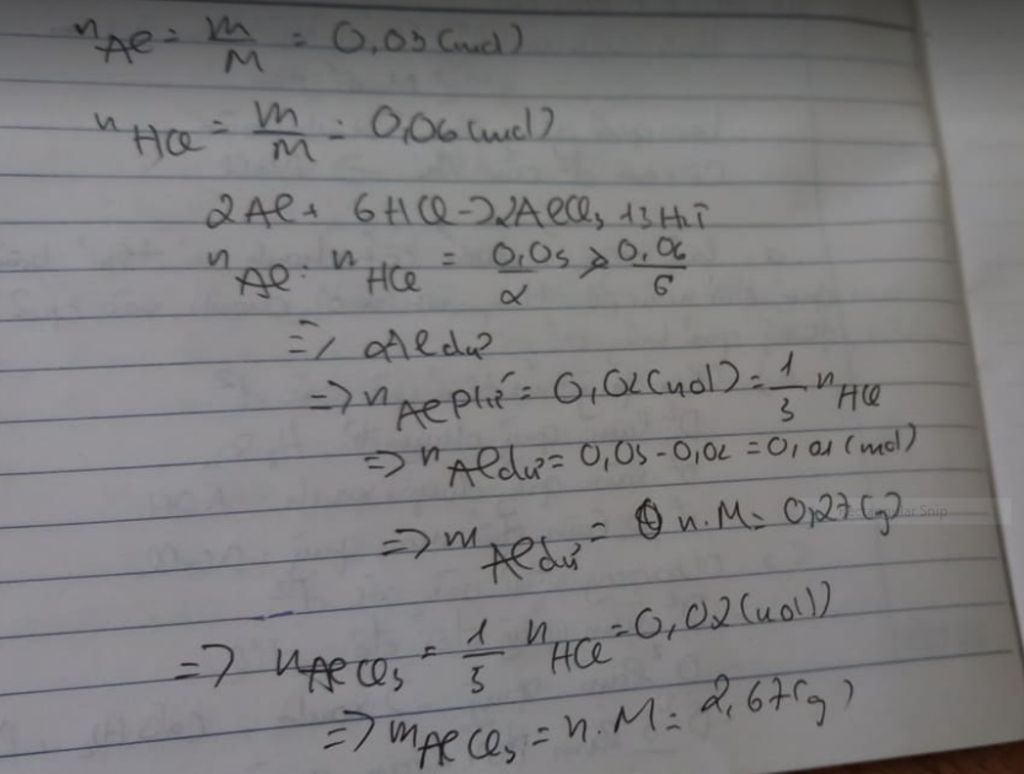 nAl = m/M = 0,03 (mol)
nHCl = m/M = 0,06 (mol)
2Al + 6HCl -> 2AlCl3 + 3H2↑
nAl : nHCl = 0,03/2 > 0,06/6
=> Al dư
=> nAl pứ = 0,02 (mol) = 1/3 nHCl
=> nAl dư = 0,03 - 0,02 = 0,01 (mol)
=> mAl dư = n.M = 0,27 (g)
=> nAlCl3 = 1/3 nHCl = 0,02 (mol)
=> mAlCl3 = n.M = 2,67 (g)